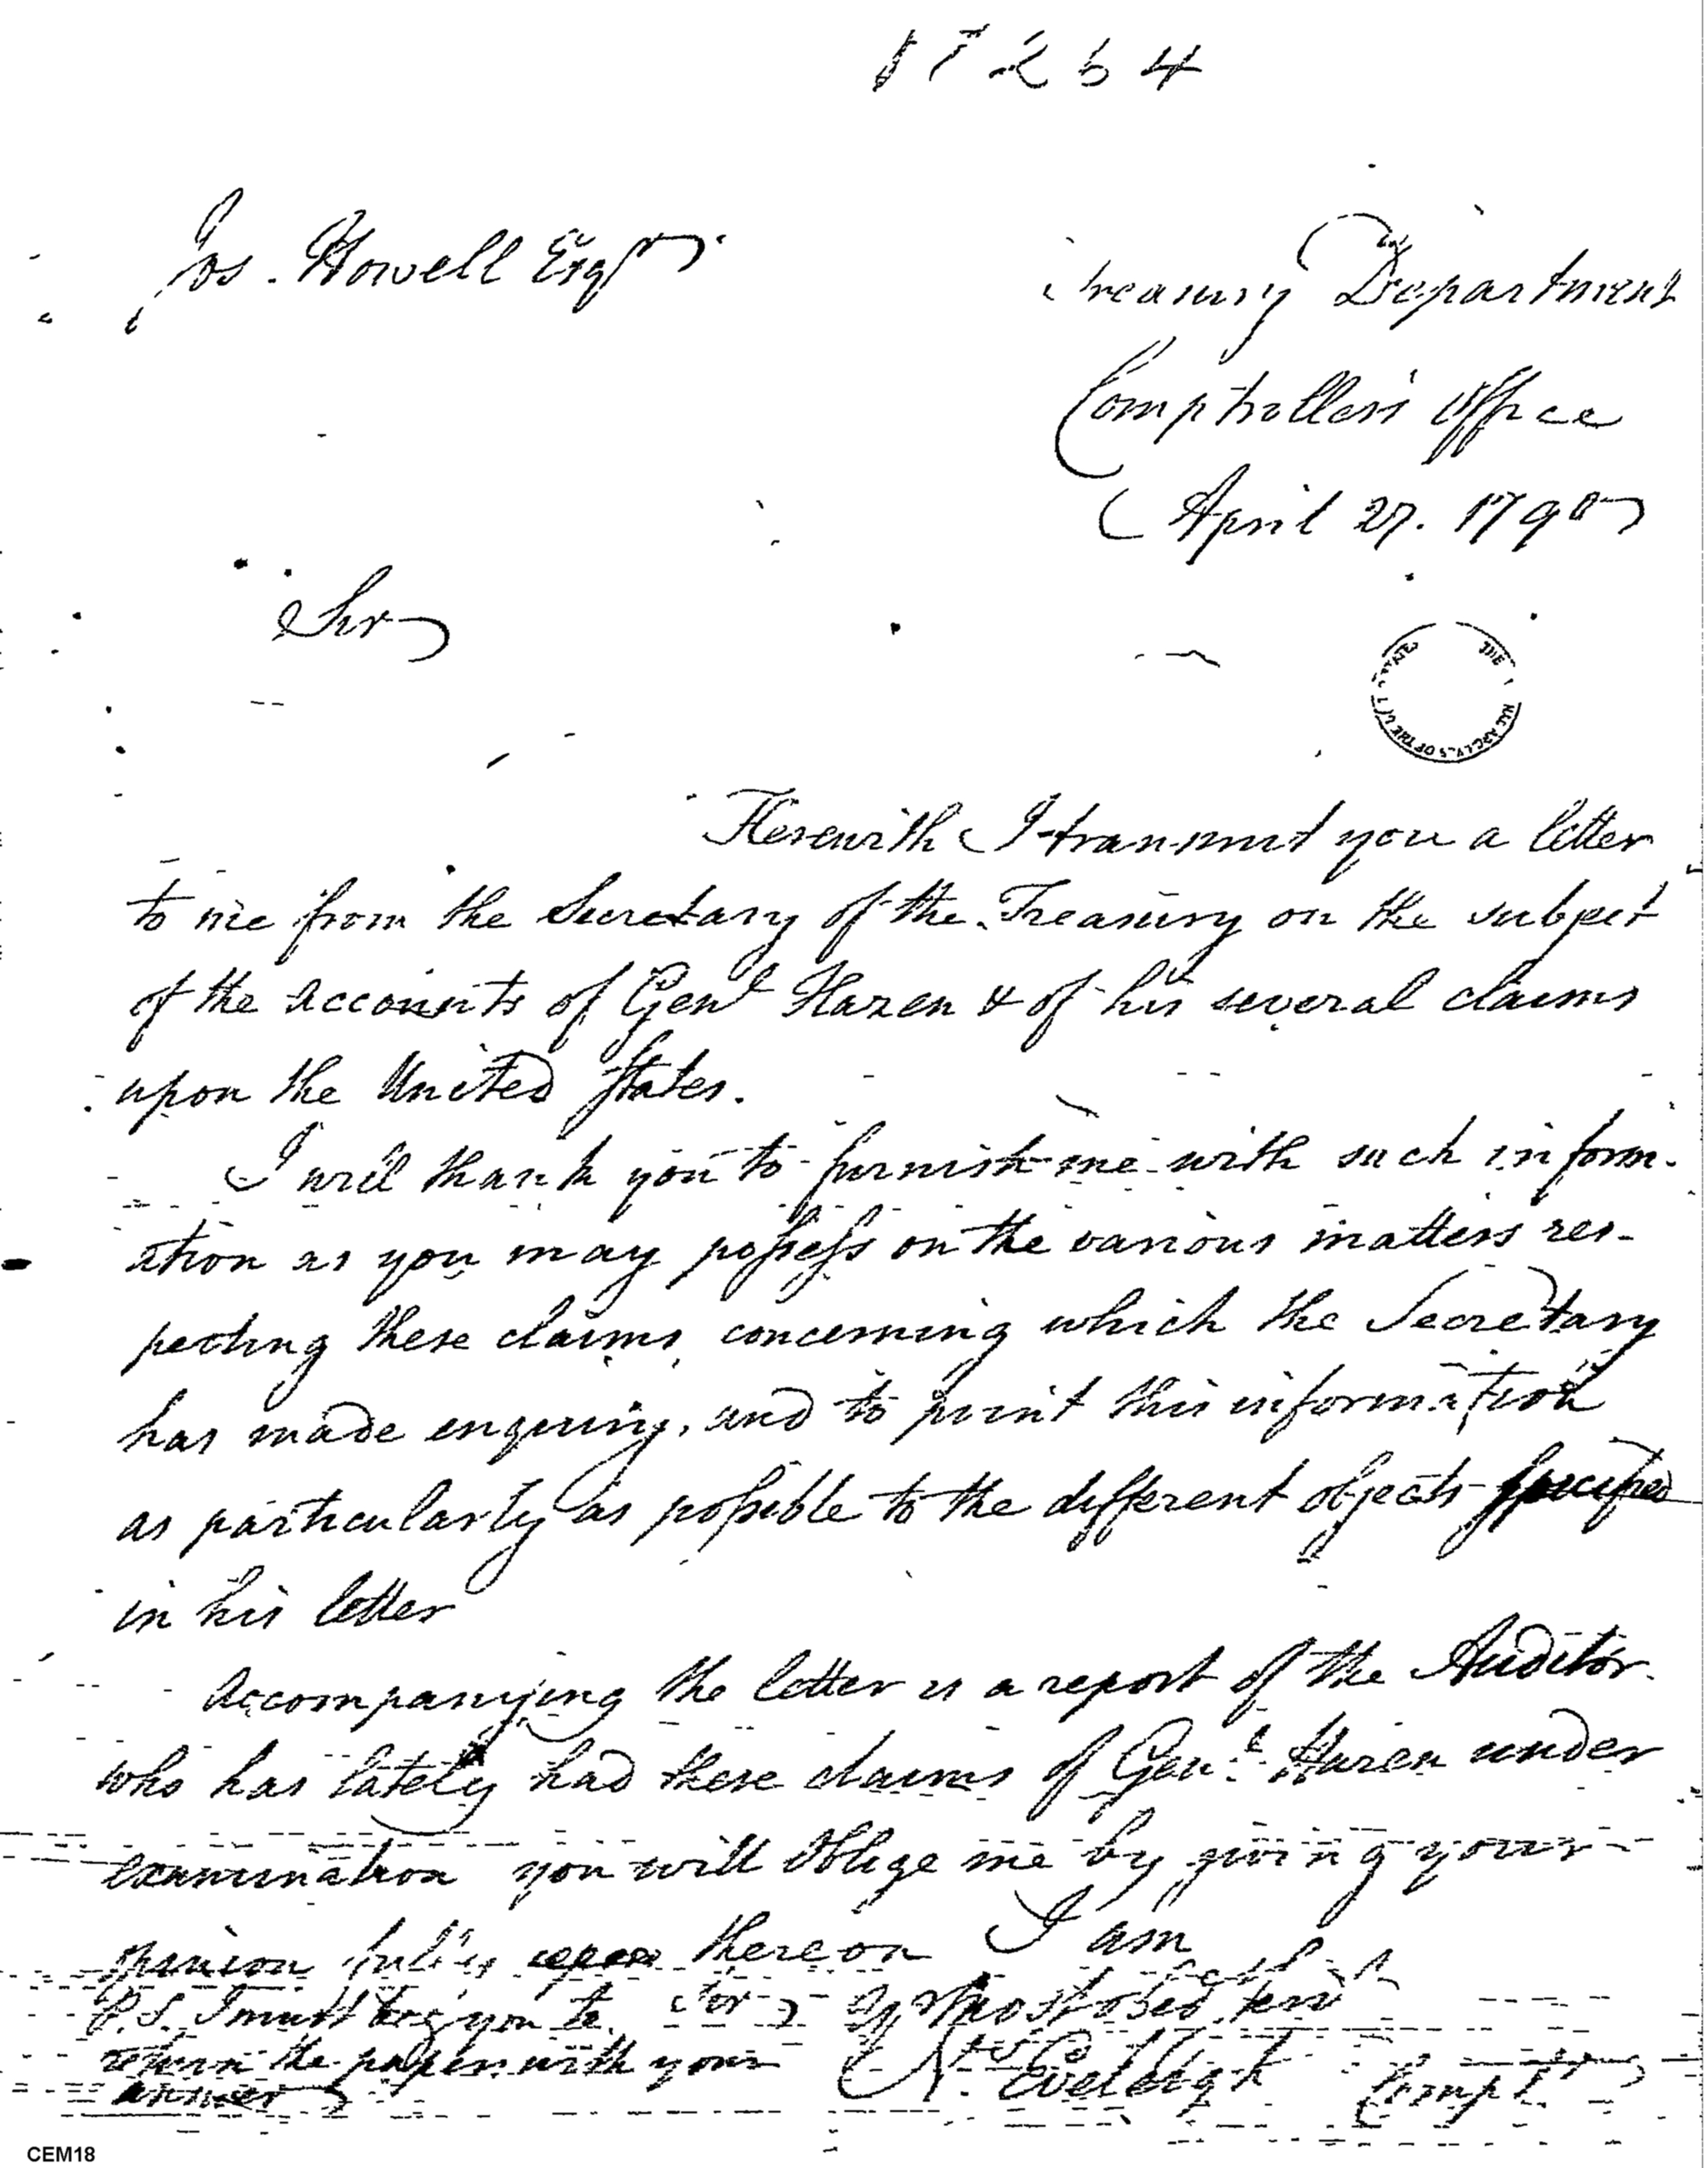 17264
Jos. Howell Esqr
Treasury Department
Comptrollers Office
April 27. 1790
Sir
THE NAL ARCHIVES OF THE STATES
Herewith I transmit you a letter
to me from the Secretary of the Treasury on the subject
of the accounts of Genl Hazen & of his several claims
upon the United States.
I will thank you to furnish me with such inform-
ation as you may possess on the various matters res-
pecting these claims, concerning which the Secretary
has made enquiry, and to point this information
as particularly as possible to the different objects specified
in his letter
Accompanying the letter is a report of the Auditor
who has lately had these claims of Genl. Hazen under
examination you will oblige me by giving your
opinion fully upon thereon I am
Sir yr most obed serv
P.S. I must beg you to
return the papers with your
answer
Ns. Eveleigh Compt.
CEM18